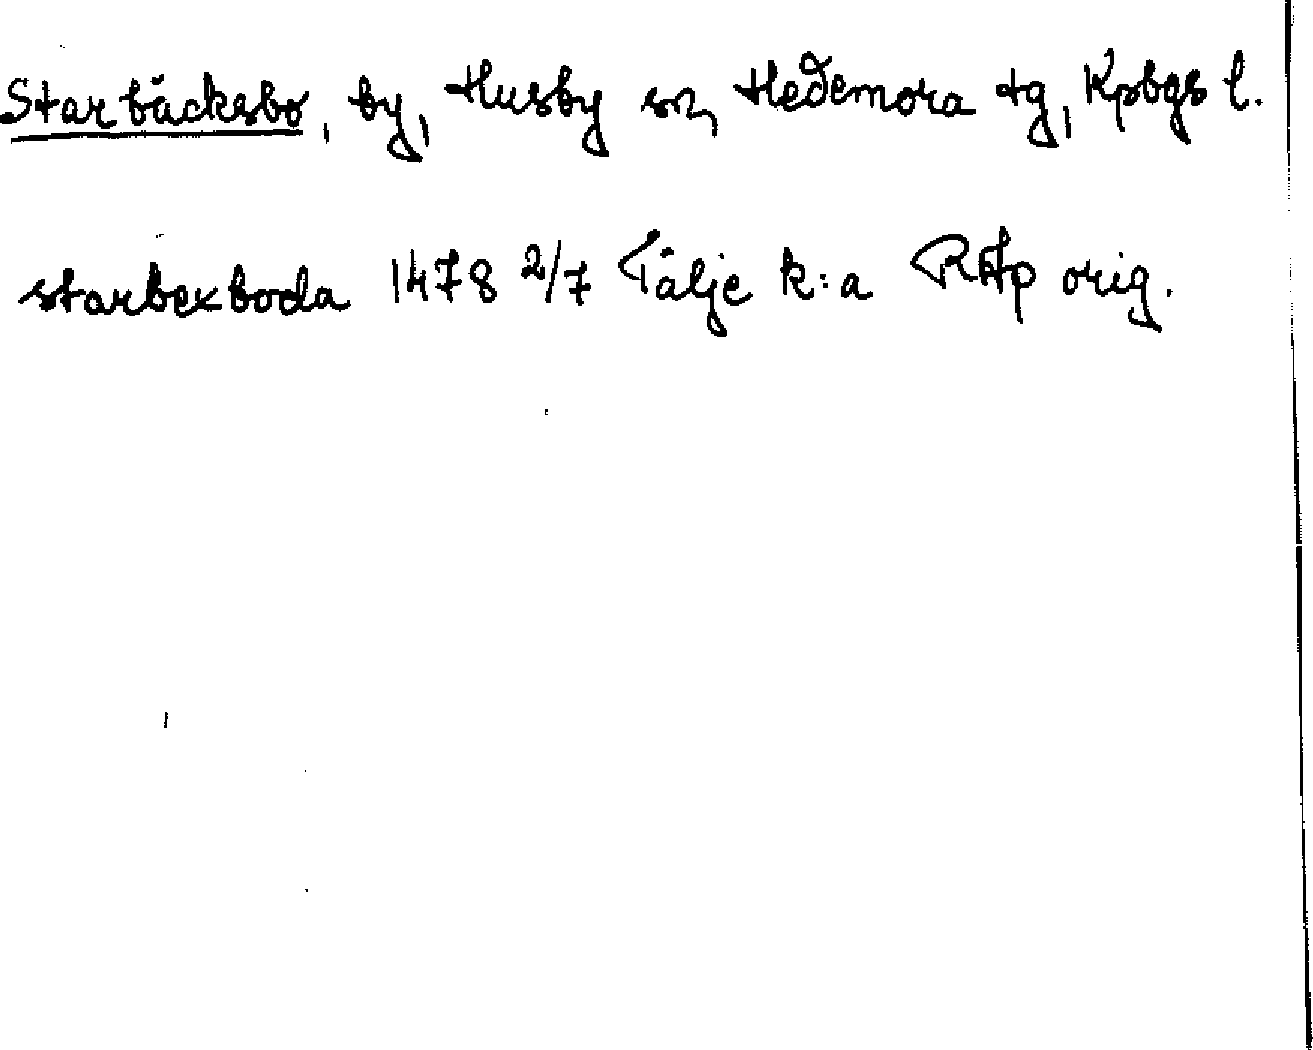 Starbäcksbo, by, Husby sn, Hedemora tg, Kpbgs l.
starbexboda 1478 2/7 Tälje k:a RAp orig.